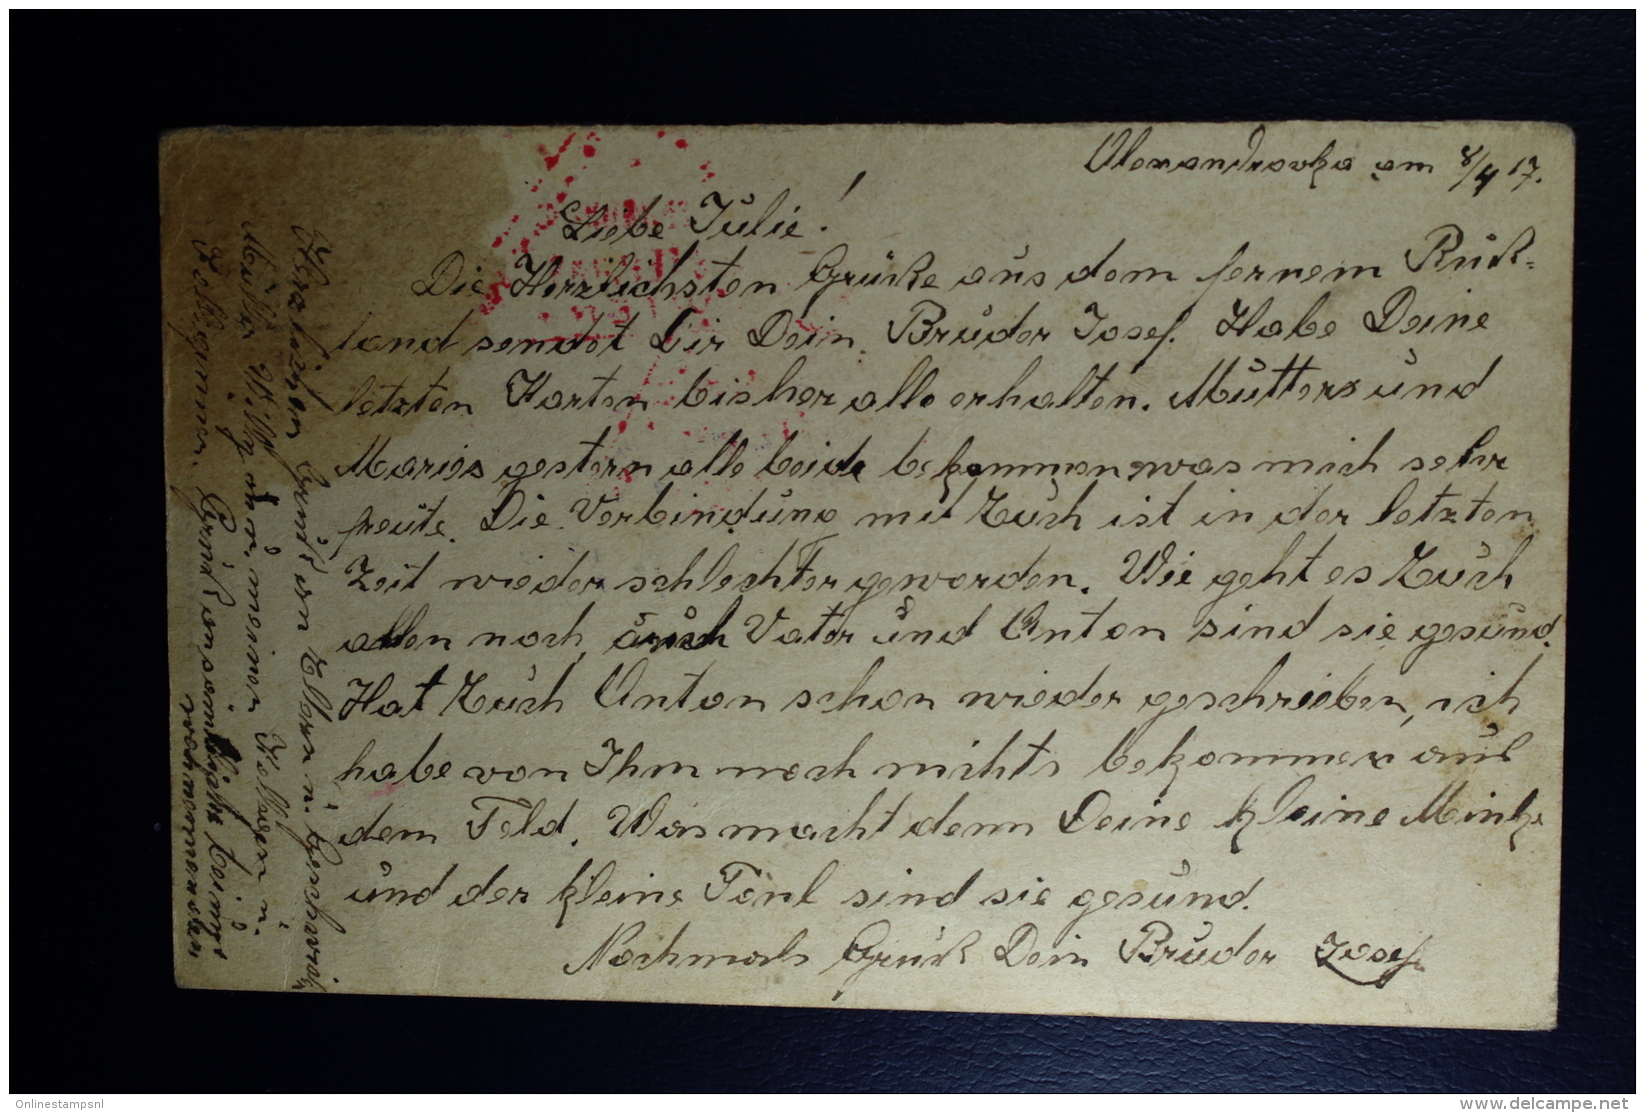 Alexandrovka am 8/4 17.
Liebe Julie!
Die Herzlichsten Grüße aus dem fernem Ruß-
land sendet Dir Dein Bruder Josef. Habe Deine
letzten Karten bisher alle erhalten. Mutters und
Maries gestern alle beide bekommen was mich sehr
freute. Die Verbindung mit Euch ist in der letzten
Zeit wieder schlechter geworden. Wie geht es Euch
allen noch, auch Vater und Anton sind sie gesund.
Hat Euch Anton schon wieder geschrieben, ich
habe von Ihm noch nichts bekommen aus
dem Feld. Was macht denn Deine kleine Minke
und der kleine Tonl sind sie gesund.
Nochmals Gruß Dein Bruder Josef
Herzlichen Gruß an Eltern u.
Müller Willy und meinen
Gruß an sämtliche
Onlinestampsnl
http://www.delcampe.net